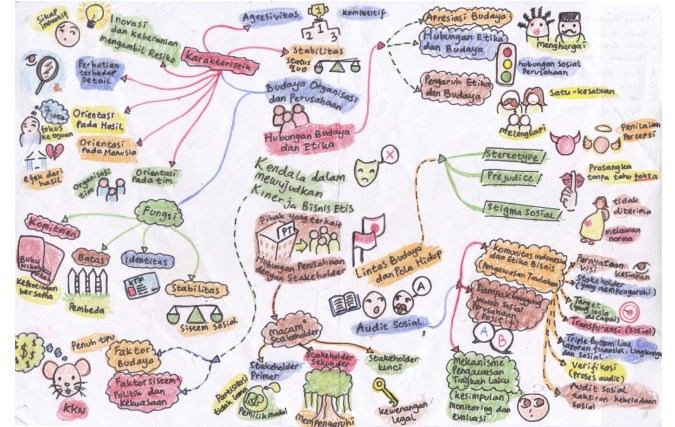 Sikap
inovatif
Inovasi
dan keberanian
mengambil Resiko
Agresivitas
kompetitif
1
2
3
Karakteristik
Stabilitas
Status
quo
Perhatian
terhadap
Detail
Orientasi
Pada Hasil
fokus
Orientasi
Pada Manusia
efek dari
hasil
organisasi
tim
Orientasi
Pada tim
Budaya Organisasi
dan Perusahaan
Hubungan Budaya
dan Etika
Apresiasi Budaya
Hubungan Etika
dan Budaya
menghargai
hubungan Sosial
Perusahaan
Pengaruh Etika
dan Budaya
Satu-kesatuan
melengkapi
Fungsi
Komitmen
Buku
Kepentingan
bersama
Batas
Pembeda
Identitas
KTP
Stabilitas
Sistem Sosial
Kendala dalam
mewujudkan
Kinerja Bisnis Etis
X
Penuh tipu
Faktor
Budaya
Faktor Sistem
Politik dan
Kekuasaan
KKN
Pihak yang terkait
PT
Hubungan Perusahaan
dengan Stakeholder
macam
Stakeholder
Stakeholder
Primer
Pemilik modal
Stakeholder
Sekunder
mempengaruhi
Stakeholder
kunci
kewenangan
legal
Lintas Budaya
dan Pola Hidup
Stereotype
Prejudice
Stigma Sosial
Penilaian
Persepsi
Prasangka
tanpa tahu fakta
tidak
diterima
melawan
norma
A
Audit Sosial
Komunitas Indonesia
dan Etika Bisnis
(Pengawasan Tindakan)
Dampak Tanggung
Jawab Sosial
Perusahaan
(Positif)
A
B
Mekanisme
Pengawasan
Tingkah Laku
(kesimpulan)
monitoring dan
evaluasi
Pernyataan
visi
kesiapan
Stakeholder
(yang mempengaruhi)
Target
(yang ingin
dicapai)
Transparansi (sosial)
Triple Bottom Line
laporan finansial, lingkungan
dan sosial
Verifikasi
(proses audit)
Audit Sosial
Sosial